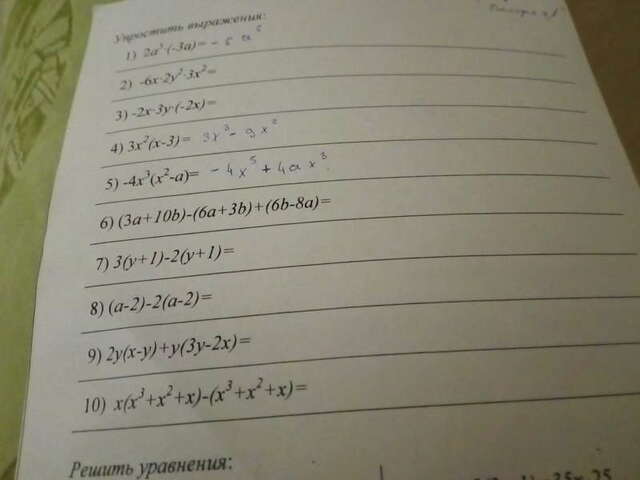 Упростить выражения:
1) 2a³·(-3a)= - 6 a⁵
2) -6x·2y²·3x²=
3) -2x·3y·(-2x)=
4) 3x²(x-3)= 3x³ - 9x²
5) -4x³(x²-a)= - 4x⁵ + 4ax³
6) (3a+10b)-(6a+3b)+(6b-8a)=
7) 3(y+1)-2(y+1)=
8) (a-2)-2(a-2)=
9) 2y(x-y)+y(3y-2x)=
10) x(x³+x²+x)-(x³+x²+x)=
Решить уравнения: